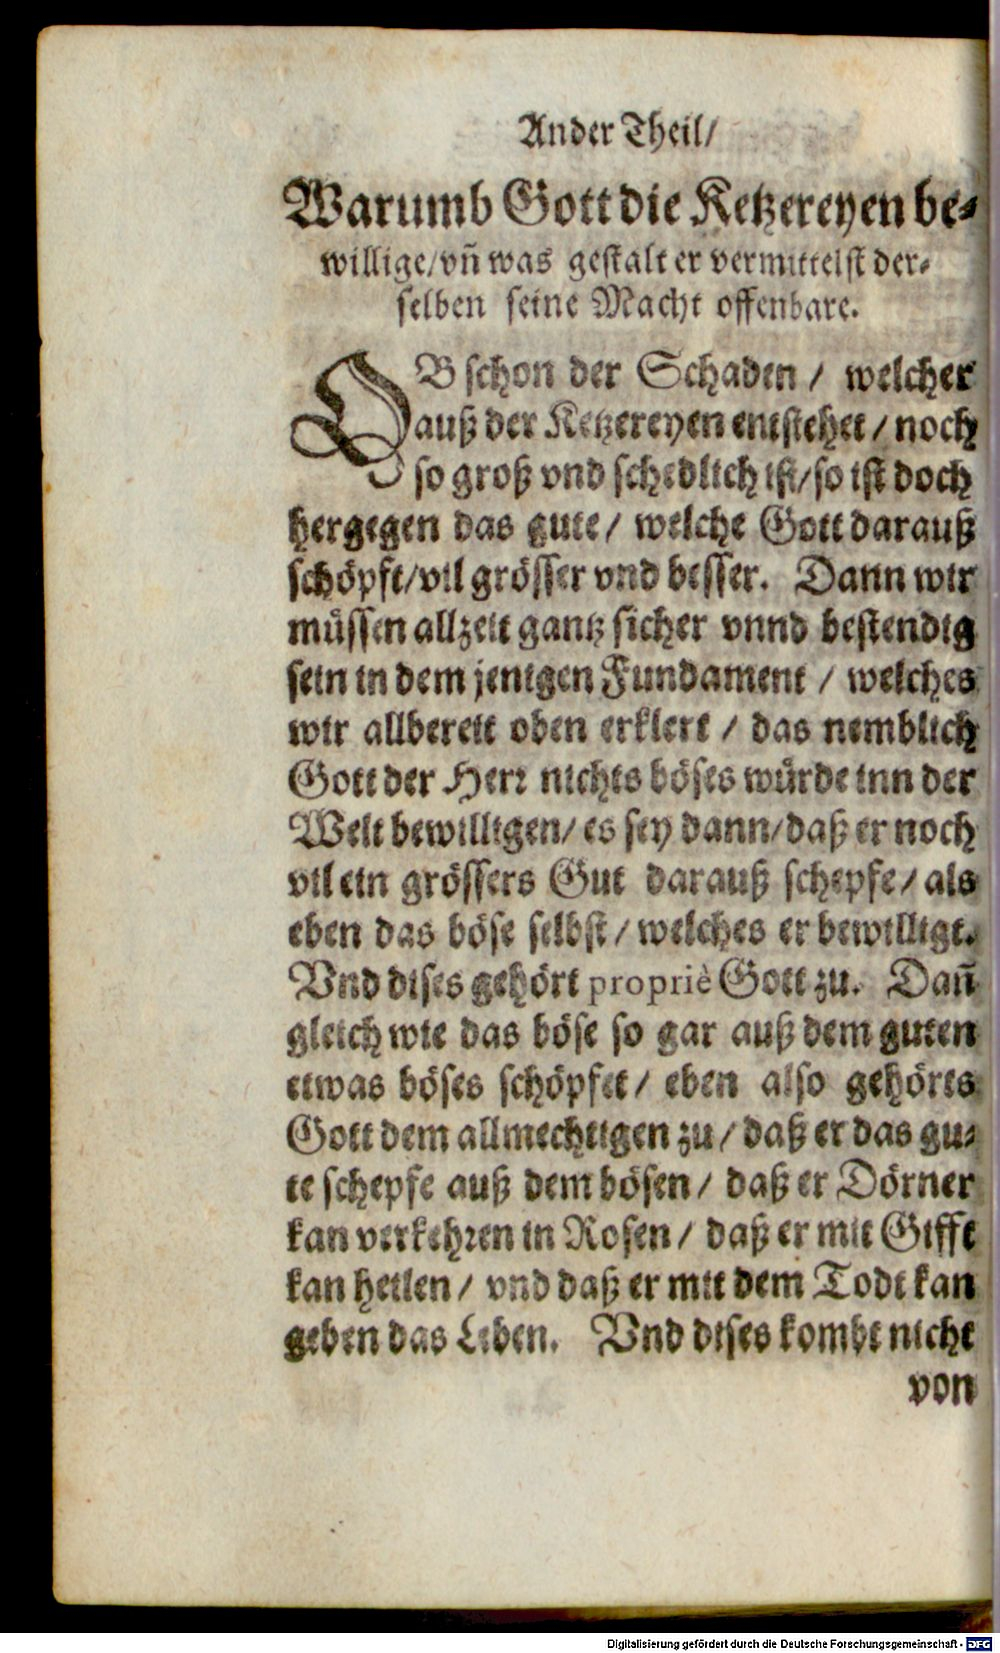 Ander Theil/
Warumb Gott die Ketzereyen be-
willige/vn̄ was gestalt er vermittelst der-
selben seine Macht offenbare.
OB schon der Schaden / welcher
auß der Ketzereyen entstehet / noch
so groß vnd schedlich ist/so ist doch
hergegen das gute / welche Gott darauß
schöpft/vil grösser vnd besser. Dann wir
müssen allzeit gantz sicher vnnd bestendig
sein in dem jenigen Fundament / welches
wir allbereit oben erklert / das nemblich
Gott der Herr nichts böses würde inn der
Welt bewilligen/ es sey dann/daß er noch
vil ein grössers Gut darauß schepfe/ als
eben das böse selbst / welches er bewilligt.
Vnd dises gehört propriè Gott zu. Dan̄
gleich wie das böse so gar auß dem guten
etwas böses schöpfet / eben also gehörts
Gott dem allmechtigen zu / daß er das gu-
te schepfe auß dem bösen / daß er Dörner
kan verkehren in Rosen / daß er mit Gifft
kan heilen / vnd daß er mit dem Todt kan
geben das Leben. Vnd dises kombt nicht
von
Digitalisierung gefördert durch die Deutsche Forschungsgemeinschaft - DFG